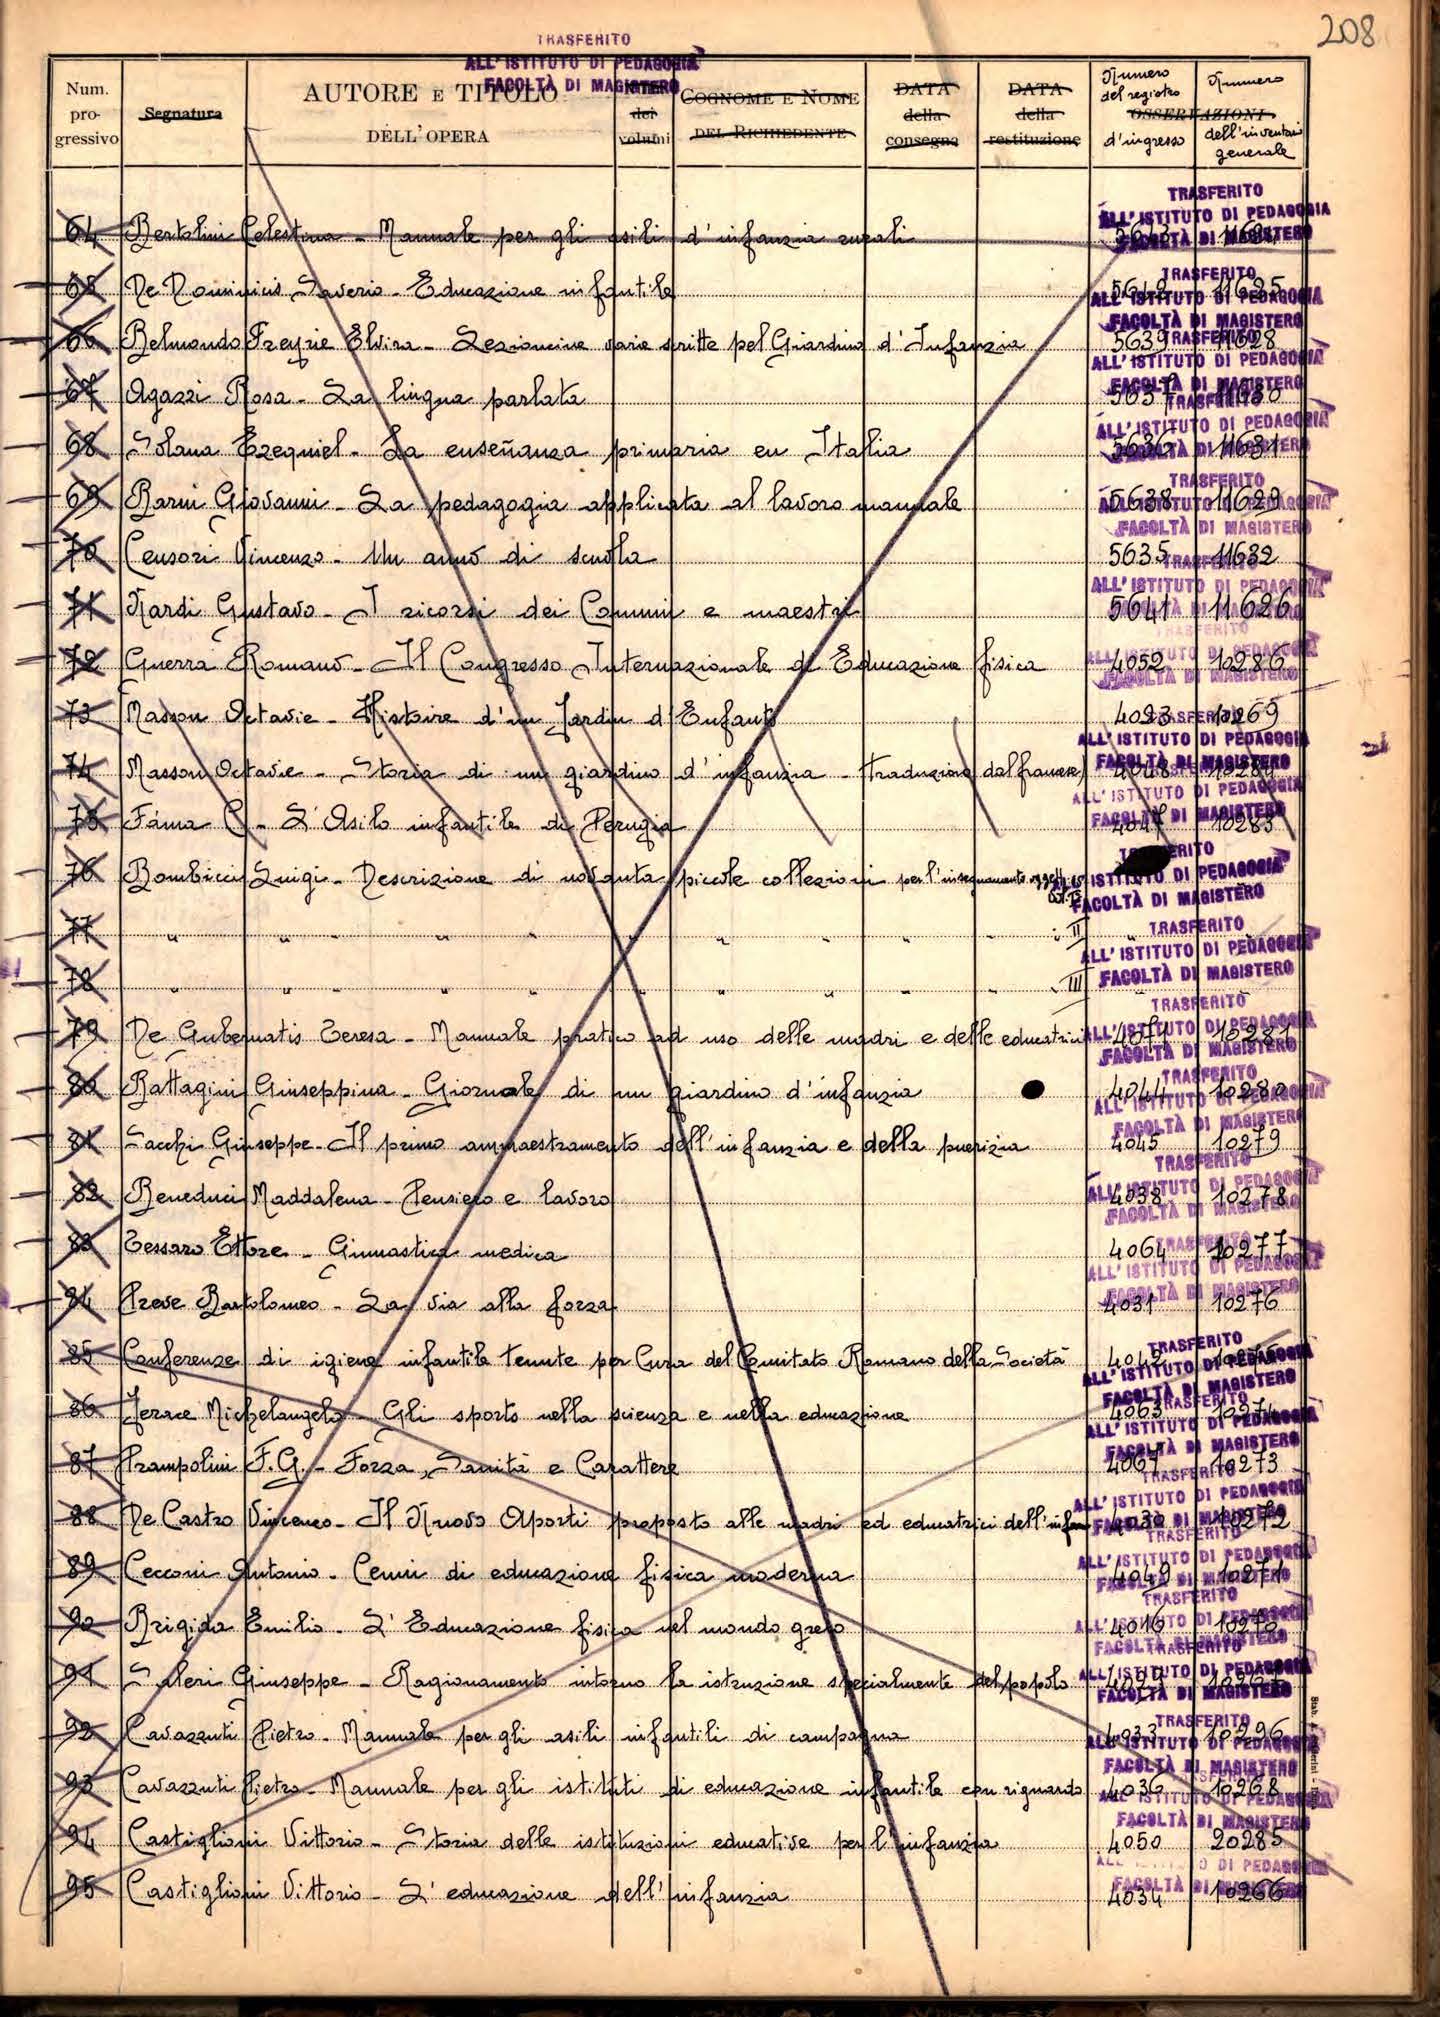 208
TRASFERITO
ALL'ISTITUTO DI PEDAGOGIA
FACOLTÀ DI MAGISTERO
Num. progressivo Segnatura AUTORE E TITOLO DELL'OPERA dei volumi COGNOME E NOME DEL RICHIEDENTE DATA della consegna DATA della restituzione OSSERVAZIONI Numero del registro d'ingresso Numero dell'inventario generale
TRASFERITO
ALL'ISTITUTO DI PEDAGOGIA
FACOLTÀ DI MAGISTERO
64 Bertolini Celestina - Manuale per gli asili d'infanzia rurali
65 De Dominicis Saverio - Educazione infantile 5642 11625
66 Belmondo Freyrie Elvira - Lezioncine varie scritte pel Giardino d'Infanzia 5639 11628
67 Agazzi Rosa - La lingua parlata 5637 11630
68 Solana Ezequiel - La enseñanza primaria en Italia 5636 11631
69 Barni Giovanni - La pedagogia applicata al lavoro manuale 5638 11629
70 Censori Vincenzo - Un anno di scuola 5635 11632
71 Nardi Gustavo - I ricorsi dei Comuni e maestri 5641 11626
72 Guerra Romano - Il Congresso Internazionale di Educazione fisica 4052 10286
73 Masson Octavie - Histoire d'un Jardin d'Enfants 4023 10269
74 Masson Octavie - Storia di un giardino d'infanzia - (traduzione dal francese) 4048 10284
75 Fáma C. - L'Asilo infantile di Perugia 4047 10283
76 Bombicci Luigi - Descrizione di novanta piccole collezioni per l'insegnamento
77 " " " " " " " " " " II "
78 " " " " " " " " " " III
79 De Gubernatis Teresa - Manuale pratico ad uso delle madri e delle educatrici 4071 10281
80 Battagini Giuseppina - Giornale di un giardino d'infanzia 4044 10280
81 Sacchi Giuseppe - Il primo ammaestramento dell'infanzia e della puerizia 4045 10279
82 Beneduci Maddalena - Pensiero e lavoro 4038 10278
83 Tessaro Ettore - Ginnastica medica 4064 10277
84 Preve Bartolomeo - La via alla forza 4031 10276
85 Conferenze di igiene infantile tenute per Cura del Comitato Romano della Società 4042
86 Jerace Michelangelo - Gli sports nella scienza e nella educazione 4063 10274
87 Prampolini F.G. - Forza, Sanità e Carattere 4067 10273
88 De Castro Vincenzo - Il Nuovo Aporti proposto alle madri ed educatrici dell'infan 4030 10272
89 Cecconi Antonio - Cenni di educazione fisica moderna 4049 10271
90 Brigida Emilio - L'Educazione fisica nel mondo greco 4016 10270
91 Saleri Giuseppe - Ragionamento intorno la istruzione specialmente del popolo
92 Cavazzuti Pietro - Manuale per gli asili infantili di campagna 4033 10296
93 Cavazzuti Pietro - Manuale per gli istituti di educazione infantile con riguardo 4036 10268
94 Castiglioni Vittorio - Storia delle istituzioni educative per l'infanzia 4050 20285
95 Castiglioni Vittorio - L'educazione dell'infanzia 4034 10266